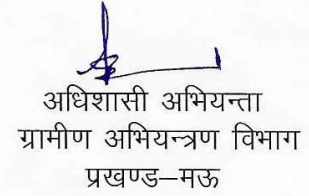 अधिशासी अभियन्ता
ग्रामीण अभियन्त्रण विभाग
प्रखण्ड–मऊ